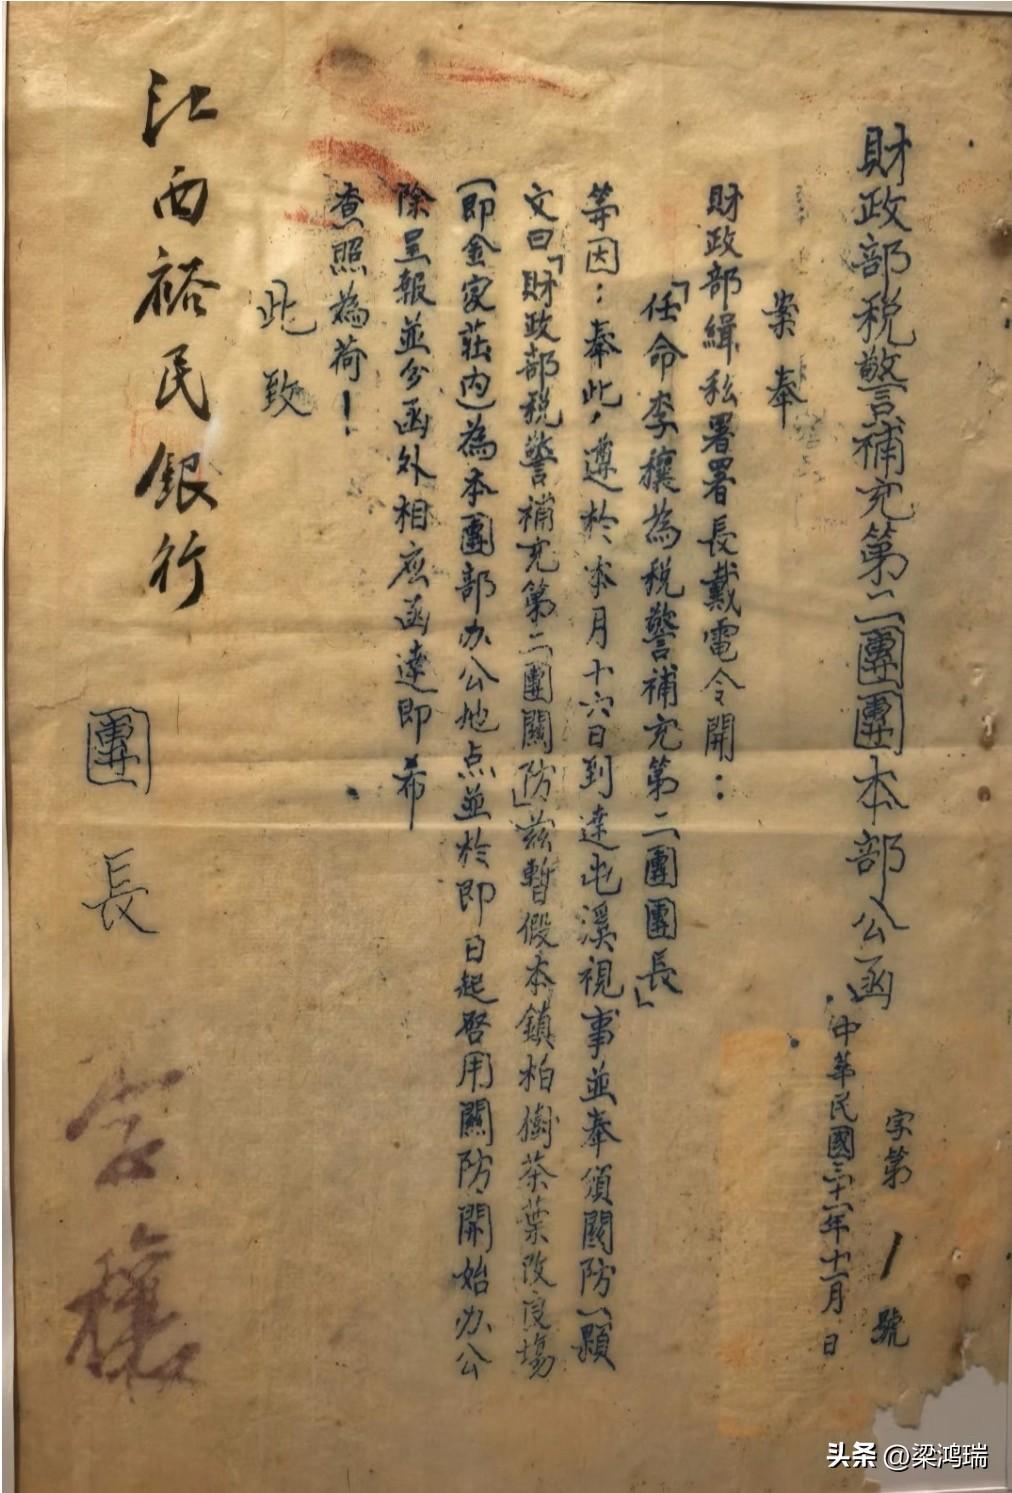 財政部税警補充第二團團本部公函
字第1號
中華民國三十一年十一月 日
案奉
財政部緝私署署長戴電令開：
「任命李穰為税警補充第二團團長」
等因：奉此，遵於本月十六日到達屯溪視事並奉頒關防一顆
文曰「財政部税警補充第二團關防」茲暫假本鎮柏樹茶葉改良場
(即金家莊内)為本團部办公地点並於即日起啓用關防開始办公
除呈報並分函外相應函達即希
查照為荷！
此致
江西裕民銀行
團長
李穰
头条 @梁鸿瑞